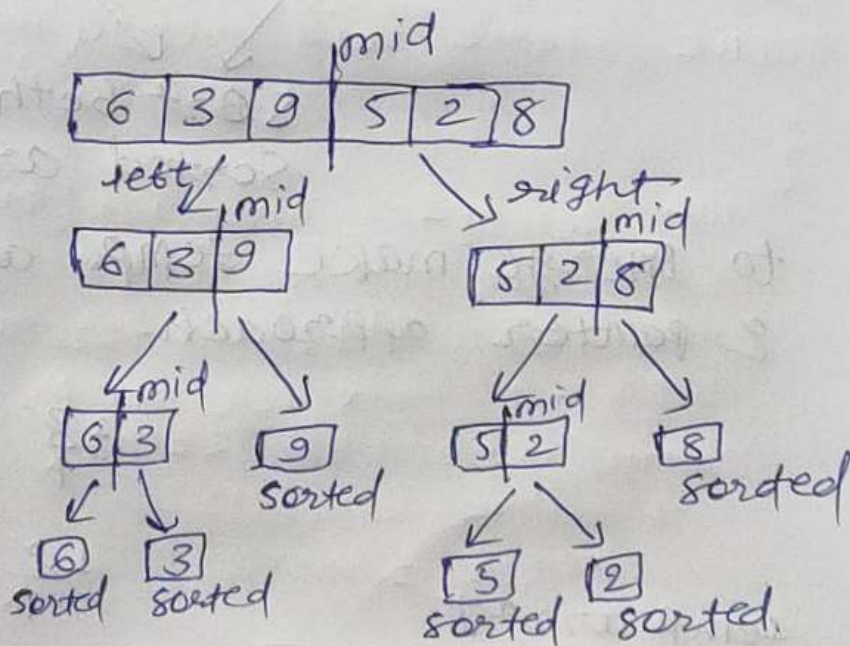 mid
6 3 9 5 2 8
left right
mid mid
6 3 9 5 2 8
mid mid
6 3 9 5 2 8
sorted sorted
6 3 5 2
sorted sorted sorted sorted.